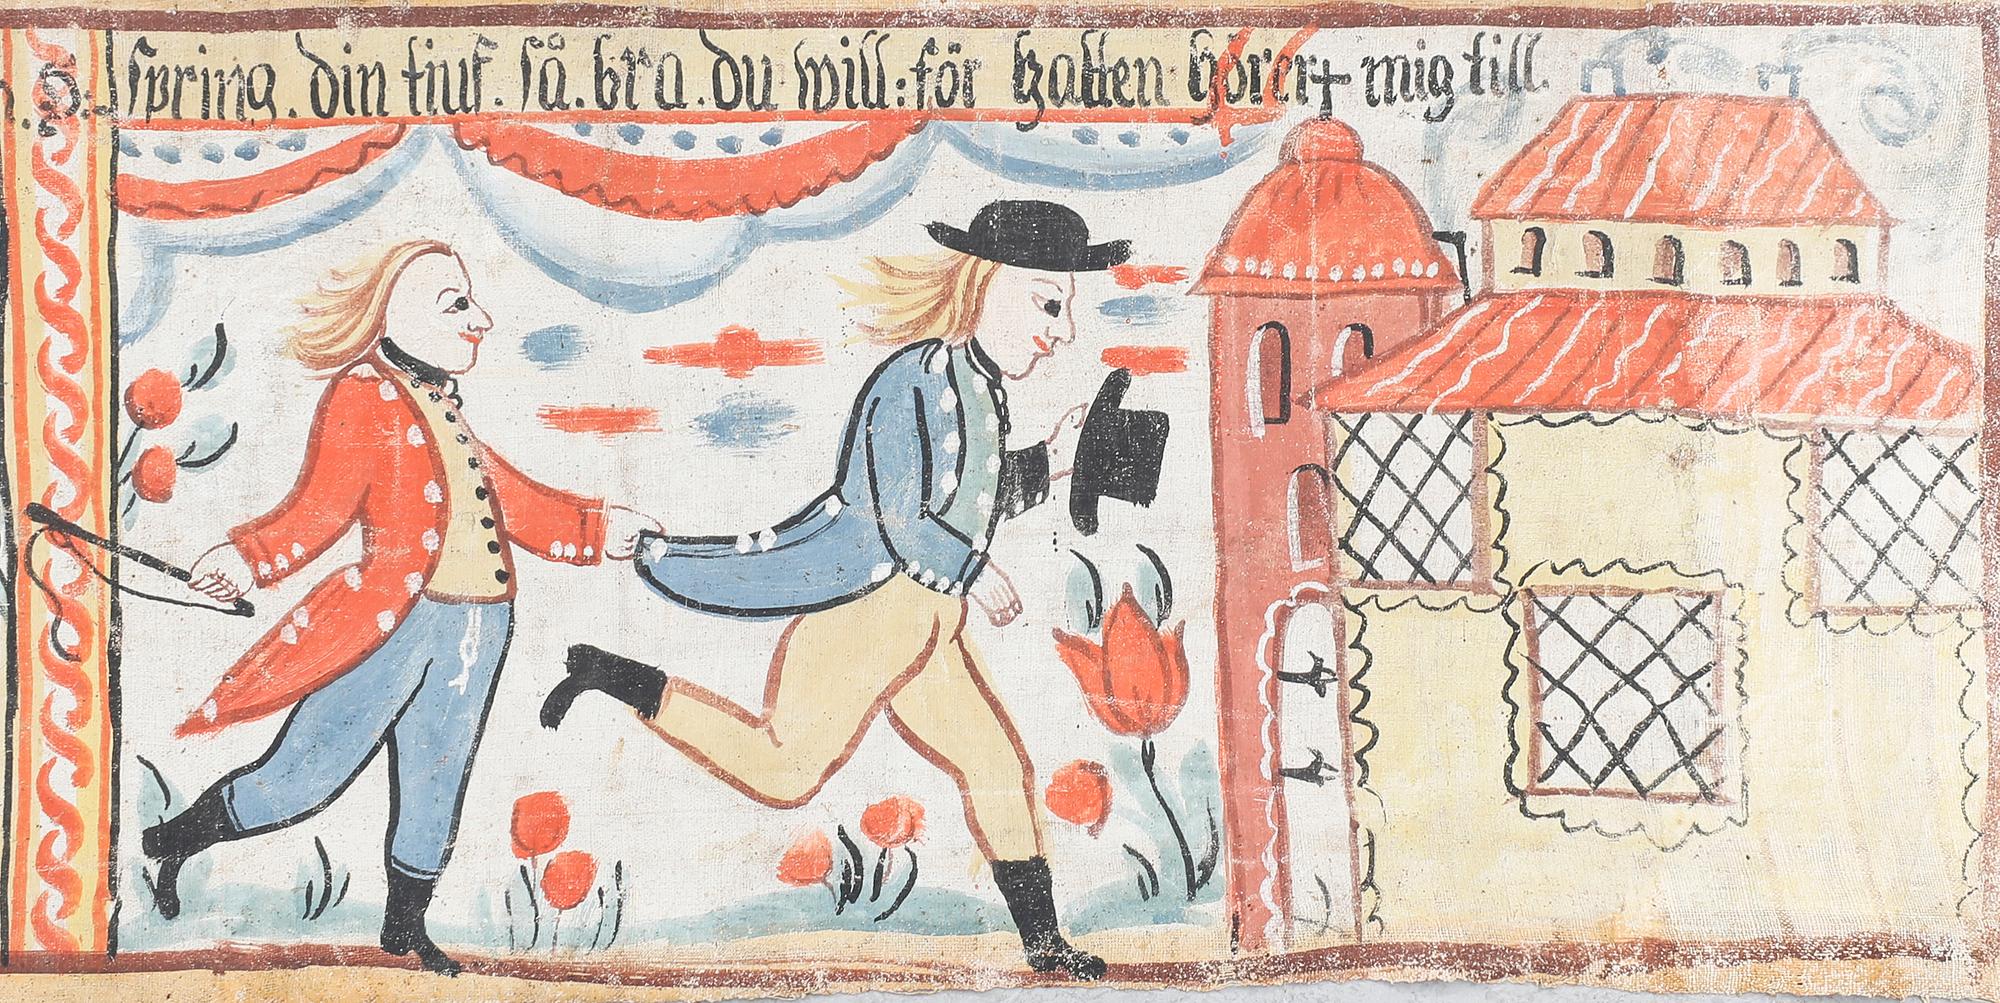 spring. din tiuf. så. bra. du will: för hatten hörer mig till.